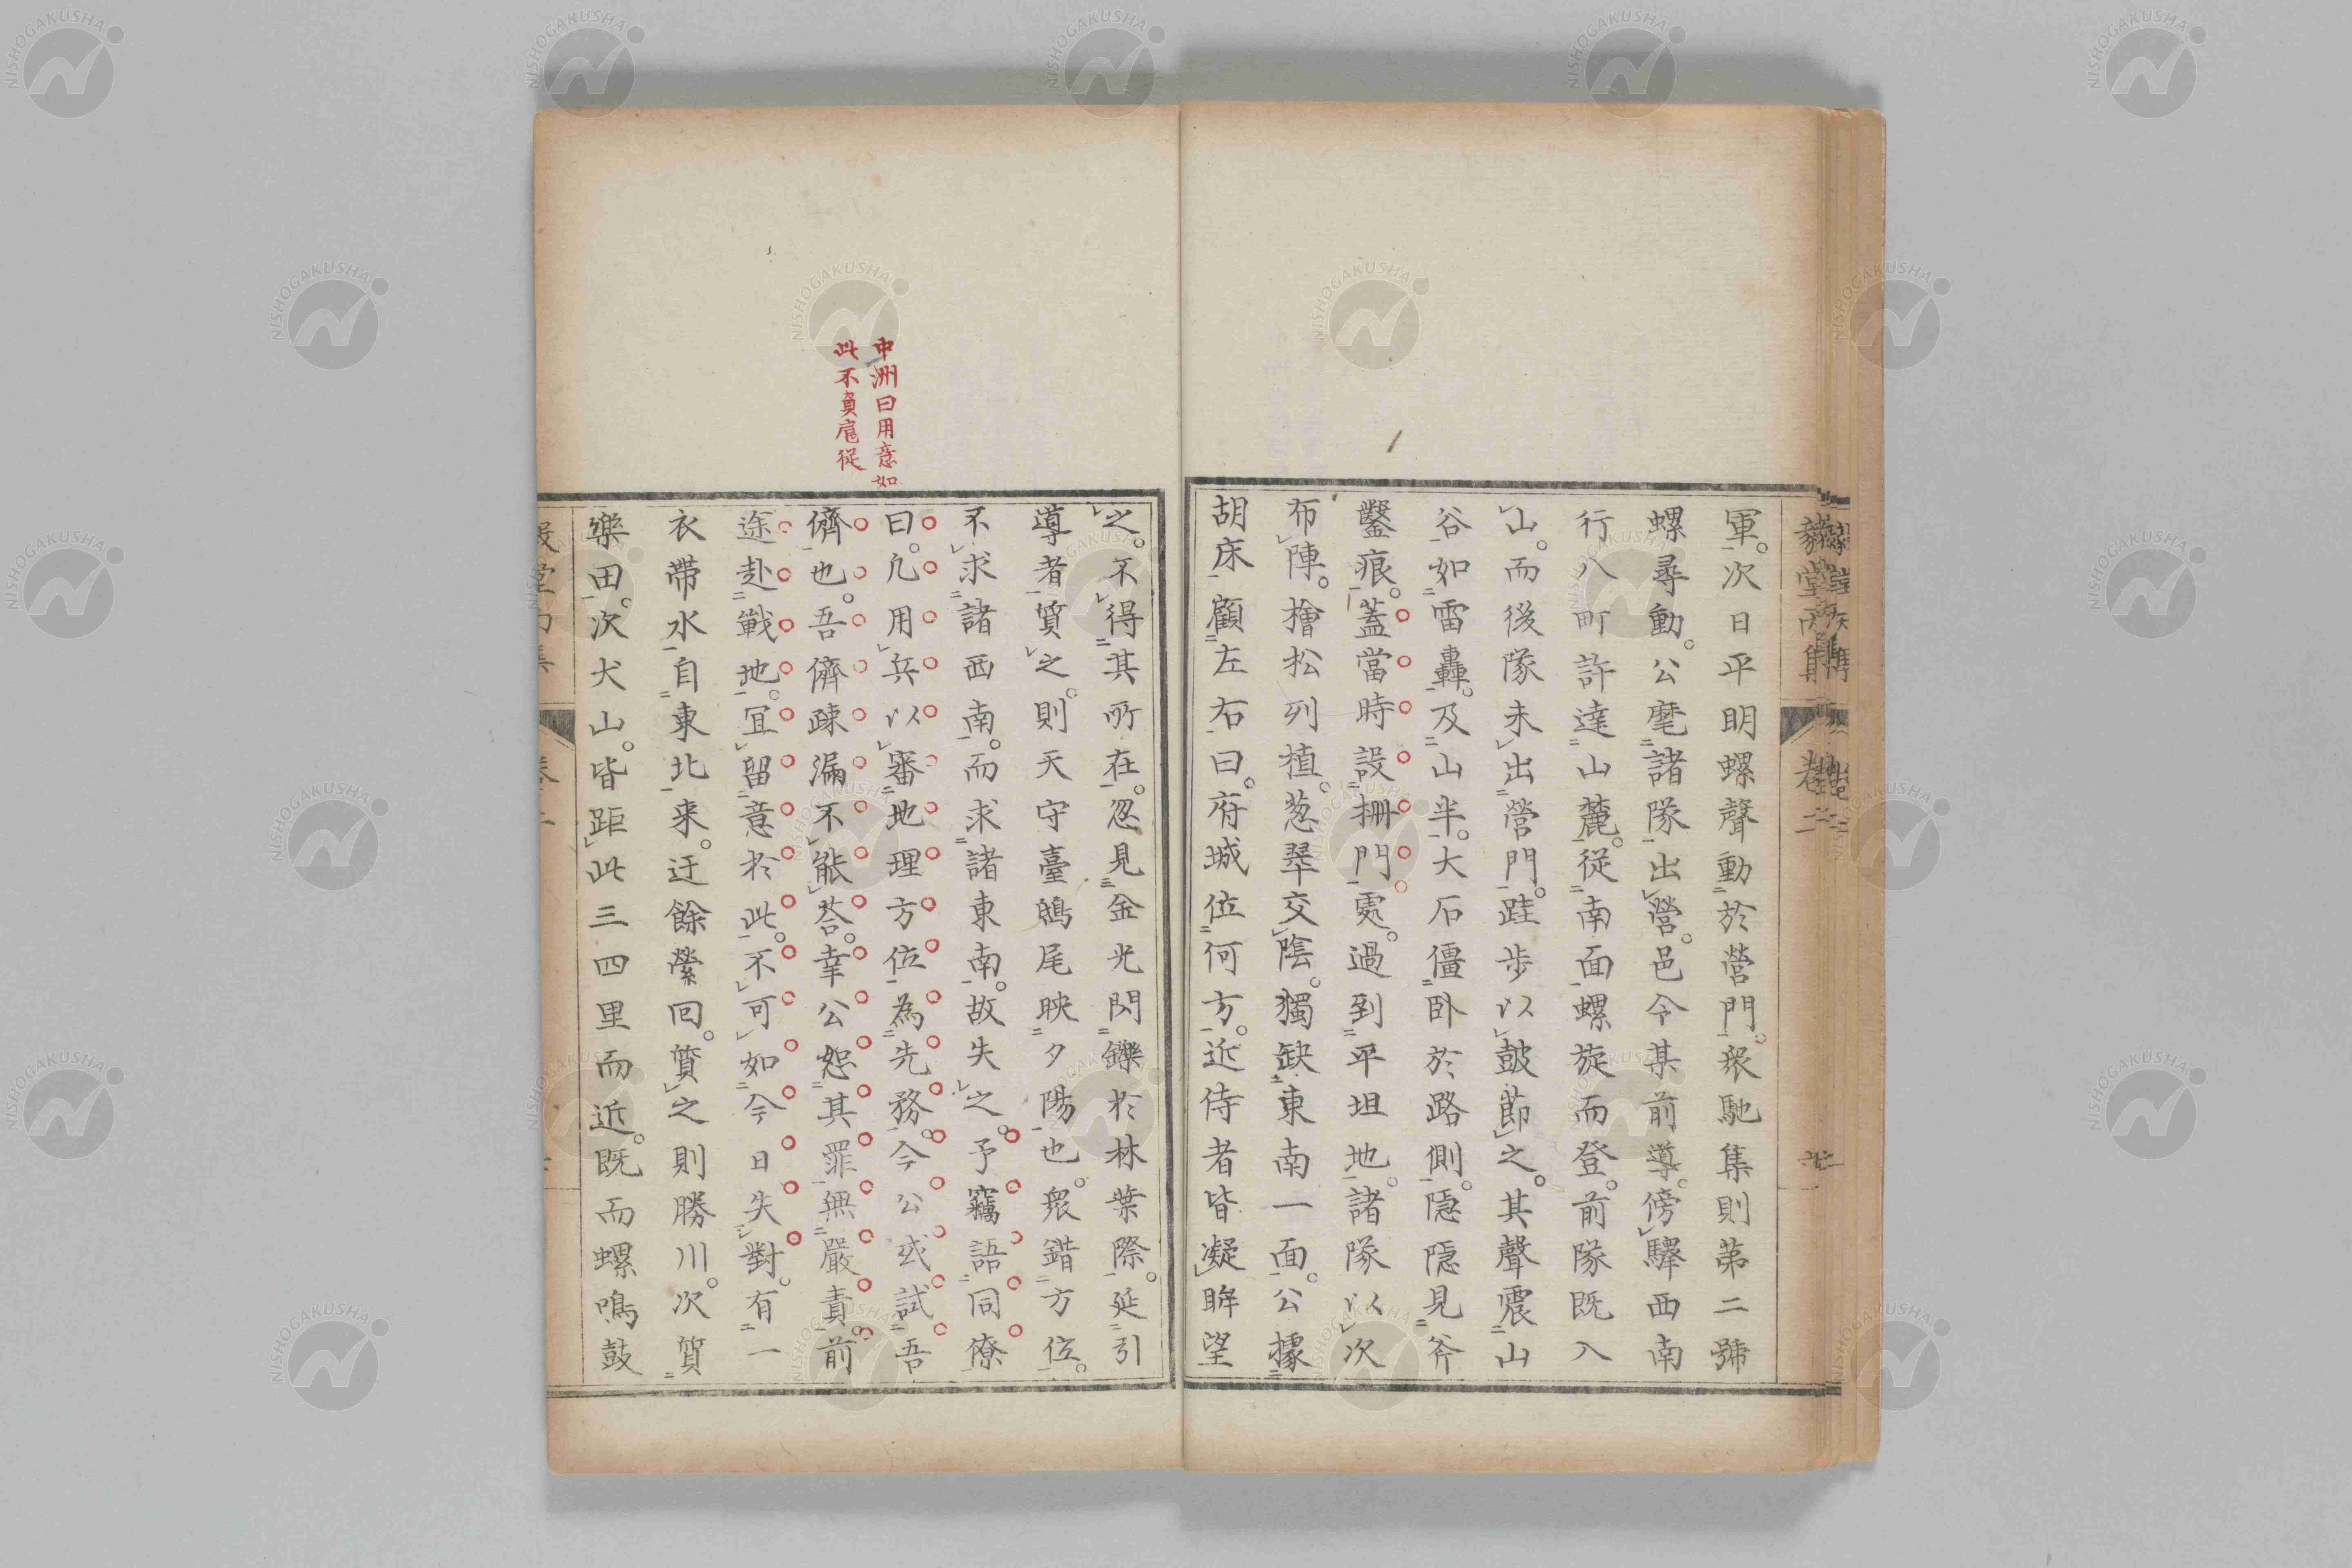 軍。次日平明螺聲動於營門。衆馳集則第二號
螺尋動。公麾諸隊出營。邑令某前導。傍驛西南
行八町許達山麓。從南面螺旋而登。前隊既入
山。而後隊未出營門。跬步以鼓節之。其聲震山
谷如雷轟。及山半。大石僵卧於路側。隱隱見斧
鑿痕。蓋當時設柵門處。過到平坦地。諸隊以次
布陣。檜松列植。葱翠交陰。獨缺東南一面。公據
胡床顧左右曰。府城位何方。近侍者皆凝眸望
之。不得其所在。忽見金光閃鑠於林葉際。延引
導者質之。則天守臺鴟尾映夕陽也。衆錯方位。
不求諸西南。而求諸東南。故失之。予竊語同僚
曰。凡用兵以審地理方位為先務。今公或試吾
儕也。吾儕疎漏不能答。幸公恕其罪無嚴責。前
途赴戰地。宜留意於此。不可如今日失對。有一
衣帶水自東北来。迂餘縈回。質之則勝川。次質
樂田。次犬山。皆距此三四里而近。既而螺鳴鼓
中洲曰用意如
此不負扈從
卷二
NISHOGAKUSHA